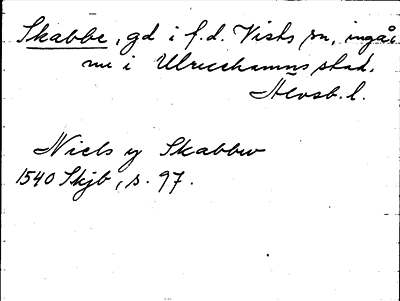 Skabbe, gd i f.d. Vists sn, ingår
nu i Ulricehamns stad.
Älvsb. l.
Niels y Skabbw
1540 Skjb, s. 97.